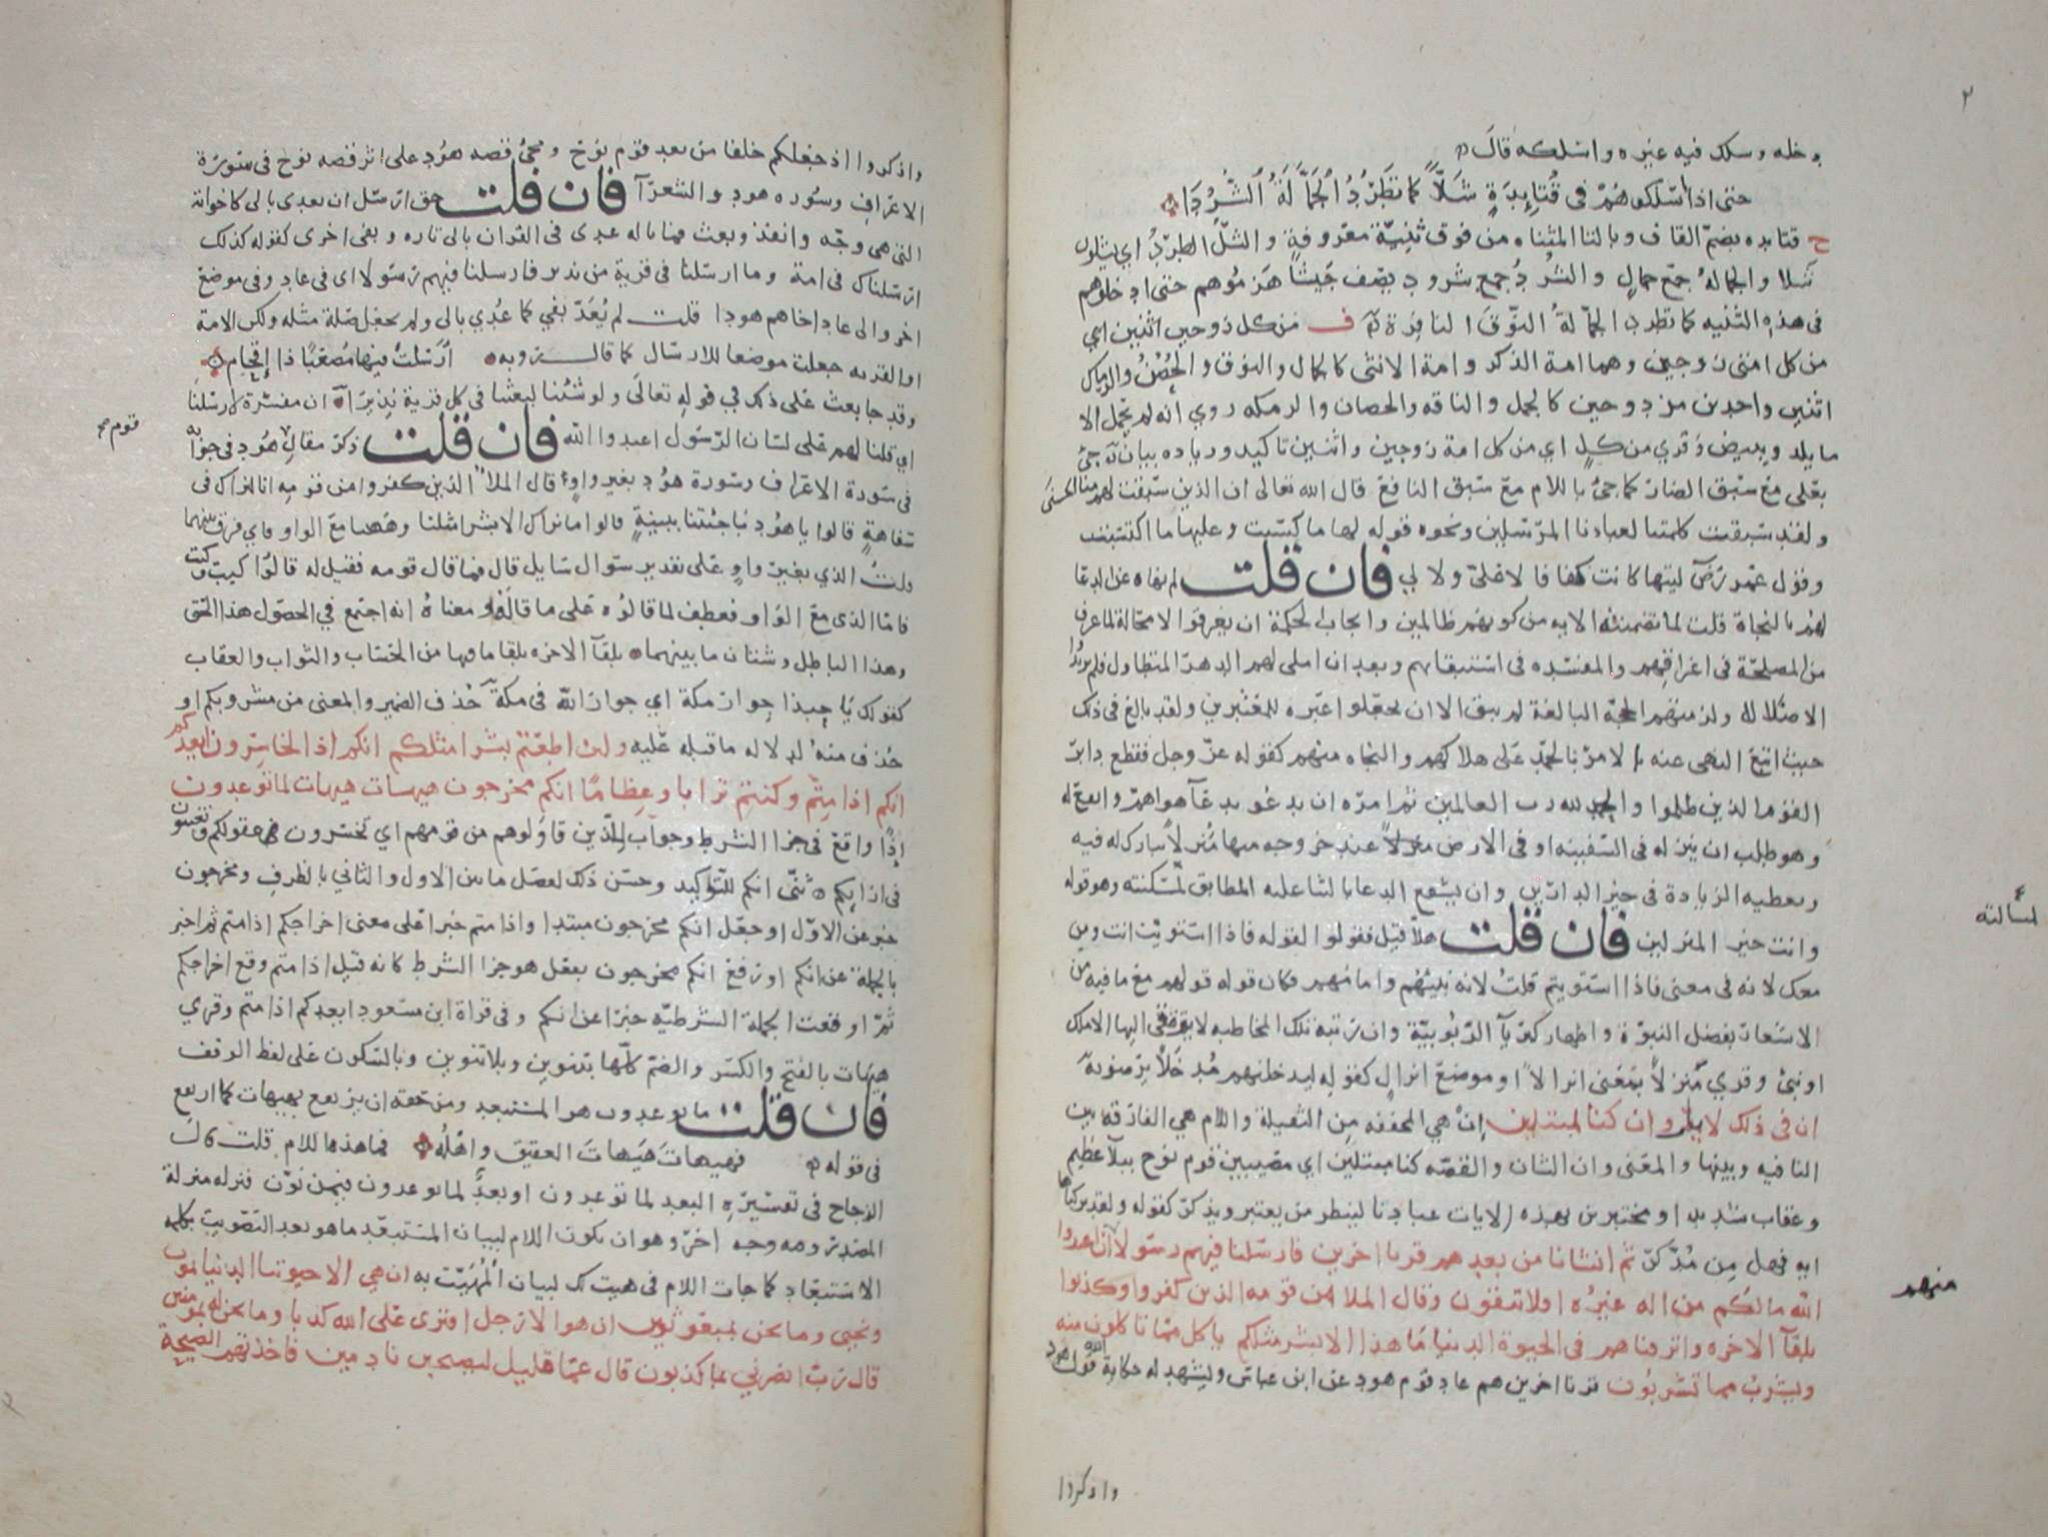 ٢
دخله وسلك فيه غيره واسلكه قال
حتى اذا اسلكوهم في قتايدة شلّاً كما تطرد الجمّالة الشردا
ح قتايده بضم القاف وبالتا المثناه من فوق ثنية معروفة والشلّ الطرد اي يشلون
شلا والجمالة جمع جمال والشرد جمع شرود يصف جيشا هزموهم حتى ادخلوهم
في هذه الثنيه كما تطرد الجمالة النوق النافرة ف من كل زوجين اثنين اي
من كل امتى زوجين وهما امة الذكر وامة الانثى كالجمال والنوق والحصن والرماك
اثنين واحدين مزدوجين كالجمل والناقه والحصان والرمكه روي أنه لم يحمل الا
ما يلد ويبيض وقري من كلٍ اي من كل امة زوجين واثنين تاكيد وزياده بيان جئ
بعلى مع سبق الضار كما جئ باللام مع سبق النافع قال الله تعالى ان الذين سبقت لهم منا الحسنى
ولقد سبقت كلمتنا لعبادنا المرسلين ونحوه قوله لها ما كسبت وعليها ما اكتسبت
وقول عمر رضي ليتها كانت كفافا لا عليّ ولا لي فان قلت لم نهاه عن الدعا
لهم بالنجاة قلت لما تضمنته الايه من كونهم ظالمين وايجاب الحكمة ان يغرقوا لا محالة لما عرف
من المصلحة في اغراقهم والمفسده في استبقائهم وبعد ان املى لهم الدهر المتطاول فلم يزيدوا
الا ضلالا ولزمتهم الحجة البالغة لم يبق الا ان يجعلوا عبرة للمعتبرين ولقد بالغ في ذلك
حيث اتبع النهى عنه الامر بالحمد على هلاكهم والنجاه منهم كقوله عز وجل فقطع دابر
القوم الذين ظلموا والحمد لله رب العالمين ثم امره ان يدعوه بدعآ هو اهم وانفع له
وهو طلب ان ينزله في السفينه او في الارض منزلاً عند خروجه منها منزلاً يبارك له فيه
ويعطيه الزيادة في خير الدارين وان يشفع الدعا بالثنا عليه المطابق لمسكنته وهو قوله
لمسألته
وانت خير المنزلين فان قلت هلّا قيل فقولوا لقوله فاذا استويت انت ومن
معك لانه في معنى فاذا استويتم قلت لانه نبيهم وامامهم فكان قوله قولهم مع ما فيه من
الاشعار بفضل النبوة واظهار كبريآ الربوبية وان رتبة تلك المخاطبه لا يترقى اليها الا ملك
او نبيّ وقري منزلاً بمعنى انزالاً او موضع انزال كقوله ليدخلنهم مدخلاً يرضونه
ان في ذلك لايات وان كنا لمبتلين إن هي المخففه من الثقيلة واللام هي الفارقه بين
النافيه وبينها والمعنى وان الشان والقصه كنا مبتلين اي مصيبين قوم نوح ببلآ عظيم
وعقاب شديد او مختبرين بهذه الايات عبادنا لينظر من يعتبر ويذكر كقوله ولقد تركناها
ايه فهل من مدّكر ثم انشانا من بعدهم قرنا اخرين فارسلنا فيهم رسولا أن اعبدوا
منهم
الله مالكم من اله غيره افلا تتقون وقال الملا من قومه الذين كفروا وكذبوا
بلقآ الاخره واترفناهم في الحيوة الدنيا ما هذا الا بشر مثلكم ياكل مما تاكلون منه
ويشرب مما تشربون قرنا اخرين هم عاد قوم هود عن ابن عباس ويشهد له حكاية الله قول هود
واذكروا
واذكروا اذ جعلكم خلفا من بعد قوم نوح ومجئ قصه هود على اثر قصه نوح في سورة
الاعراف وسوره هود والشعرآ فان قلت حق ارسل ان يعدى بالى كاخواته
التي هي وجّه وانفذ وبعث فما باله عدى في القران بالى تاره وبفى اخرى كقوله كذلك
ارسلناك في امة وما ارسلنا في قرية من نذير فارسلنا فيهم رسولا اى في عاد وفي موضع
اخر والى عاد اخاهم هودا قلت لم يُعَدّ بفي كما عُدي بالى ولم يجعل صلة مثله ولكن الامة
او القريه جعلت موضعا للارسال كما قال روبه ارسلت فيها مصعبًا ذا إقحام
وقد جا بعث على ذلك في قوله تعالى ولو شئنا لبعثنا في كل قرية نذيرا ان مفسرة لارسلنا
اي قلنا لهم على لسان الرسول اعبدوا الله فان قلت ذكر مقال هود في جوابه
قوم صح
في سورة الاعراف وسورة هود بغير واوٍ قال الملا الذين كفروا من قومه انا لنراك في
سفاهةٍ قالوا يا هود ما جئتنا ببينةٍ قالوا ما نراك الا بشرا مثلنا وههنا مع الواو فاي فرق بينهما
قلت الذي بغير واوٍ على تقدير سوال سايل قال فما قال قومه فقيل له قالوا كيت وكيت
فاما الذى مع الواو فعطف لما قالوه على ما قاله ومعناه انه اجتمع في الحصول هذا الحق
وهذا الباطل وشتان ما بينهما بلقآ الاخره بلقا ما فيها من الحساب والثواب والعقاب
كقولك يا حبذا جوار مكة اي جوار الله في مكة حذف الضمير والمعنى من مشروبكم او
حذف منه لدلاله ما قبله عليه ولئن اطعتم بشرا مثلكم انكم اذا لخاسرون ايعدكم
انكم اذا متم وكنتم ترابا وعظامًا انكم مخرجون هيهات هيهات لما توعدون
إذًا واقع في جزا الشرط وجواب للذين قاولوهم من قومهم اي تخسرون عقولكم وتغبنون
في ارايكم ثنّى انكم للتوكيد وحسن ذلك لفصل ما بين الاول والثاني بالظرف ومخرجون
خبر عن الاول او جعل انكم مخرجون مبتدا واذا متم خبرا على معنى اخراجكم اذا متم ثم اخبر
بالجملة عن انكم او رفع انكم مخرجون بفعل هو جزا الشرط كانه قيل اذا متم وقع اخراجكم
ثم اوقعت الجملة الشرطيّه خبرًا عن انكم وفي قراة ابن مسعود ايعدكم اذا متم وقري
هيهات بالفتح والكسر والضم كلّها بتنوين وبلا تنوين وبالسكون على لفظ الوقف
فان قلت ما توعدون هو المستبعد ومن حقه ان يرتفع بهيهات كما ارتفع
في قوله فهيهات هيهات العقيق واهله فما هذه اللام قلت قال
الزجاج في تفسيره البعد لما توعدون او بعدٌ لما توعدون فيمن نوّن فنزله منزلة
المصدر وفيه وجه اخر وهو ان يكون اللام لبيان المستبعد ما هو بعد التصويت بكلمة
الاستبعاد كما جات اللام في هيت لك لبيان المُهَيَّت به ان هي الا حيوتنا الدنيا نموت
ونحيى وما نحن بمبعوثين ان هو الا رجل افترى على الله كذبا وما نحن له بمومنين
قال رب انصرني بما كذبون قال عما قليل ليصبحن نادمين فاخذتهم الصيحة